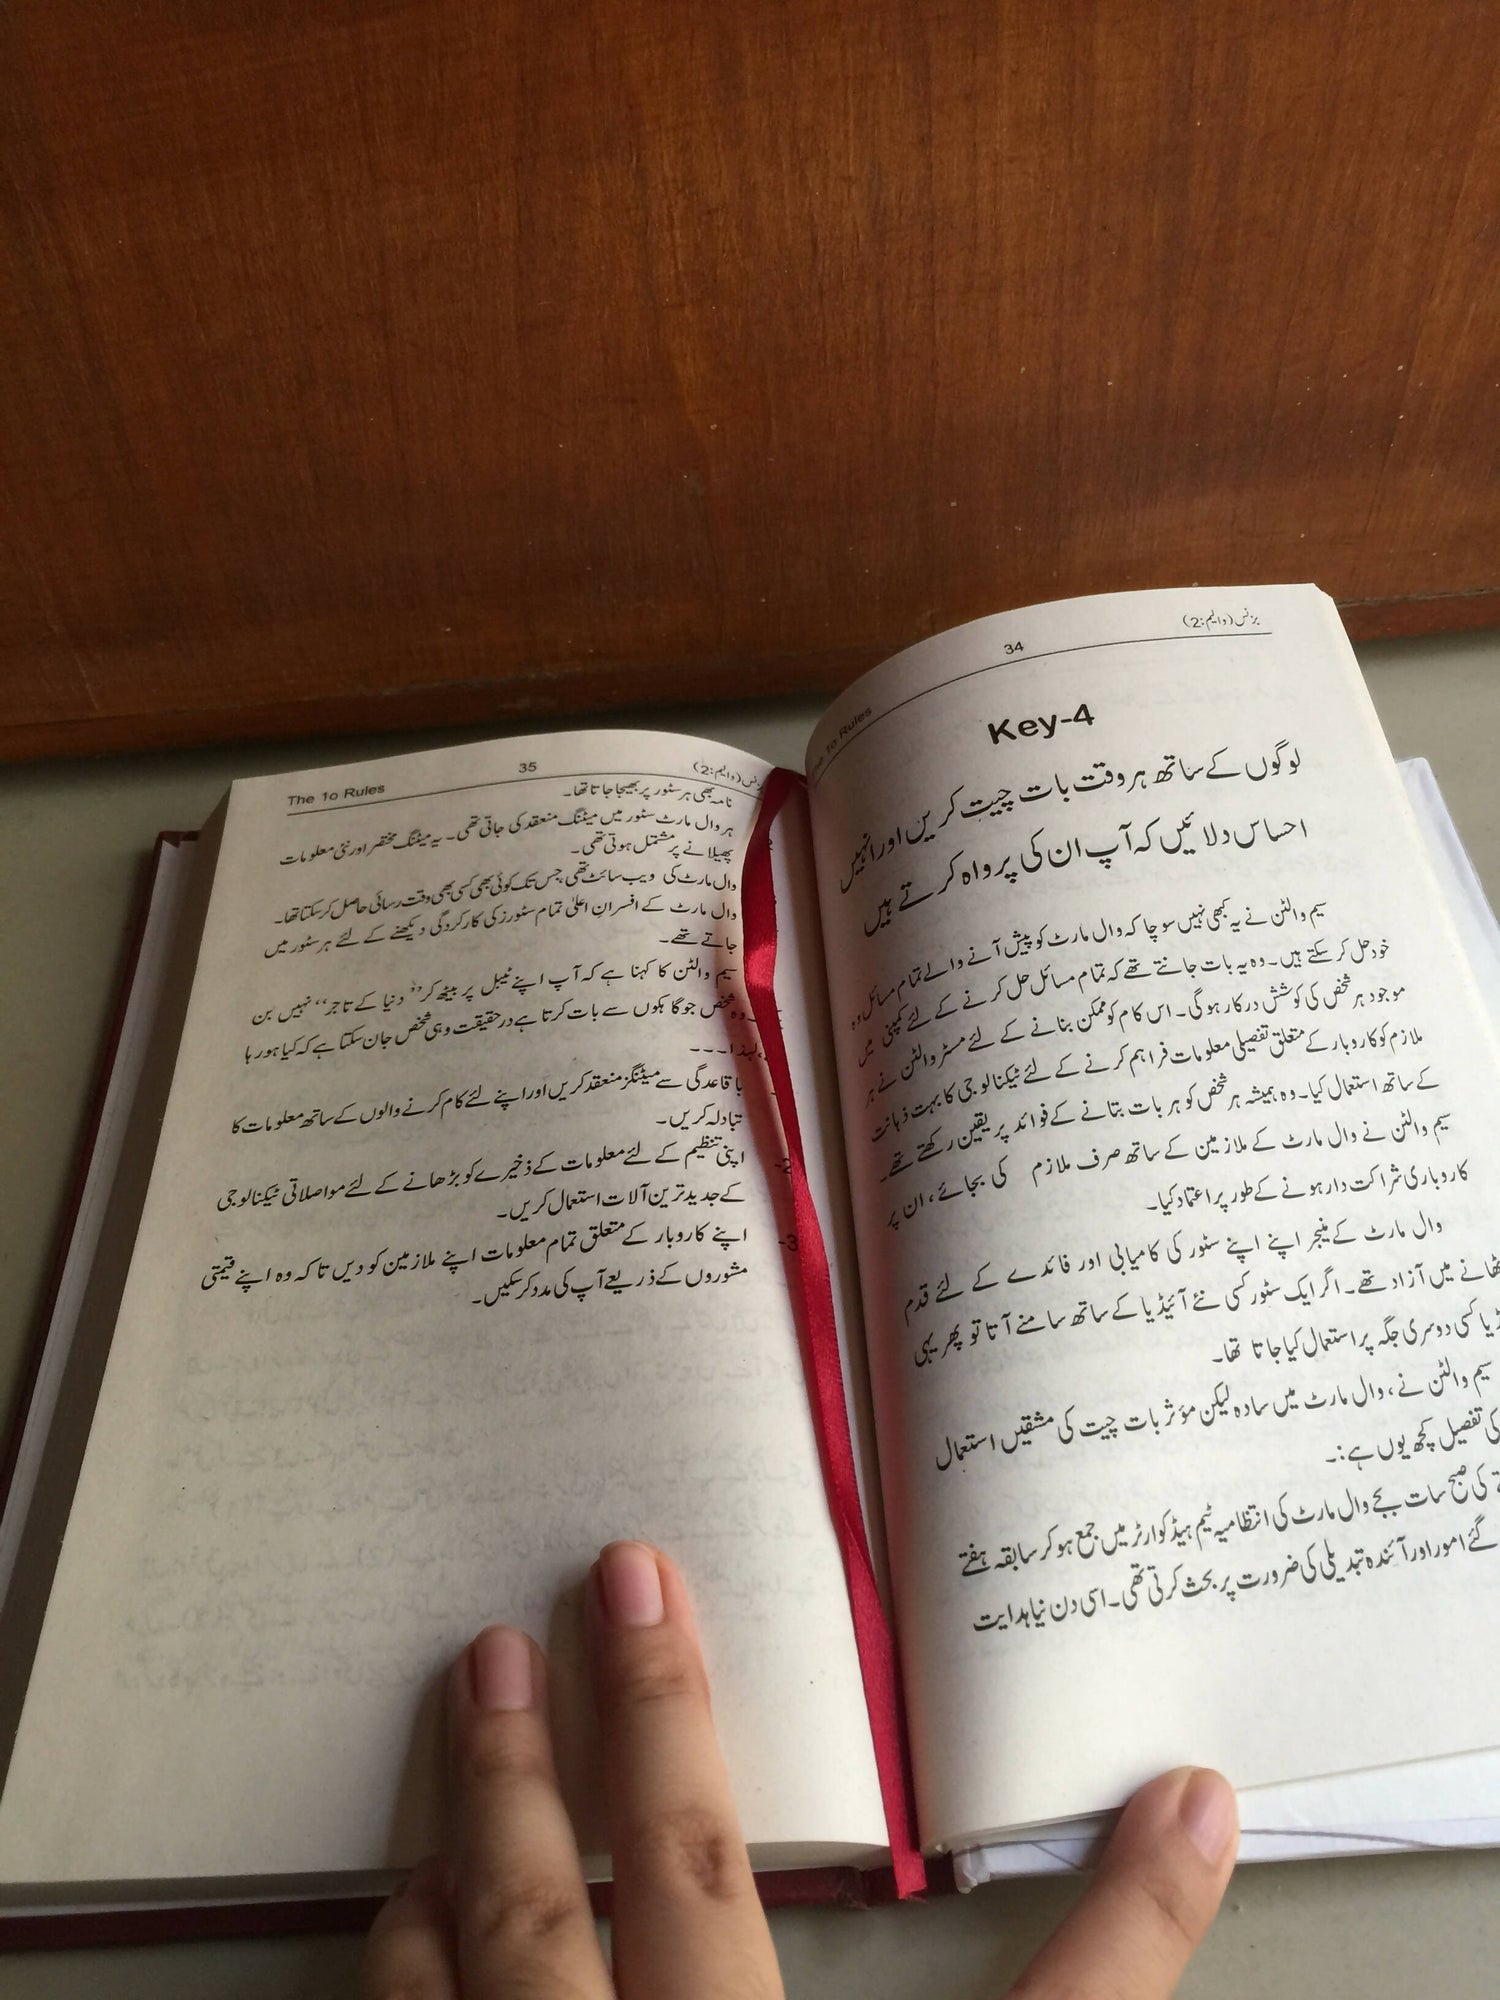 بزنس (والیم:2)
34
The 1o Rules
Key-4
لوگوں کے ساتھ ہر وقت بات چیت کریں اور انہیں
احساس دلائیں کہ آپ ان کی پرواہ کرتے ہیں
سیم والٹن نے یہ کبھی نہیں سوچا کہ وال مارٹ کو پیش آنے والے تمام مسائل وہ
خود حل کر سکتے ہیں۔ وہ یہ بات جانتے تھے کہ تمام مسائل حل کرنے کے لئے کمپنی میں
موجود ہر شخص کی کوشش درکار ہوگی۔ اس کام کو ممکن بنانے کے لئے مسٹر والٹن نے ہر
ملازم کو کاروبار کے متعلق تفصیلی معلومات فراہم کرنے کے لئے ٹیکنالوجی کا بہت ذہانت
کے ساتھ استعمال کیا۔ وہ ہمیشہ ہر شخص کو ہر بات بتانے کے فوائد پر یقین رکھتے تھے۔
سیم والٹن نے وال مارٹ کے ملازمین کے ساتھ صرف ملازم کی بجائے، ان پر
کاروباری شراکت دار ہونے کے طور پر اعتماد کیا۔
وال مارٹ کے منیجر اپنے اپنے سٹور کی کامیابی اور فائدے کے لئے قدم
ٹھانے میں آزاد تھے۔ اگر ایک سٹور کسی نئے آئیڈیا کے ساتھ سامنے آتا تو پھر یہی
ڈیا کسی دوسری جگہ پر استعمال کیا جاتا تھا۔
سیم والٹن نے، وال مارٹ میں سادہ لیکن مؤثر بات چیت کی مشقیں استعمال
کی تفصیل کچھ یوں ہے:۔
کی صبح سات بجے وال مارٹ کی انتظامیہ ٹیم ہیڈ کوارٹر میں جمع ہو کر سابقہ ہفتے
گئے امور اور آئندہ تبدیلی کی ضرورت پر بحث کرتی تھی۔ اسی دن نیا ہدایت
بزنس (والیم:2)
35
The 1o Rules
نامہ بھی ہر سٹور پر بھیجا جاتا تھا۔
ہر وال مارٹ سٹور میں میٹنگ منعقد کی جاتی تھی۔ یہ میٹنگ مختصر اور نئی معلومات
پھیلانے پر مشتمل ہوتی تھی۔
وال مارٹ کی ویب سائٹ تھی جس تک کوئی بھی کسی بھی وقت رسائی حاصل کر سکتا تھا۔
وال مارٹ کے افسران اعلیٰ تمام سٹورز کی کارکردگی دیکھنے کے لئے ہر سٹور میں
جاتے تھے۔
سیم والٹن کا کہنا ہے کہ آپ اپنے ٹیبل پر بیٹھ کر ”دنیا کے تاجر“ نہیں بن
وہ شخص جو گاہکوں سے بات کرتا ہے درحقیقت وہی شخص جان سکتا ہے کہ کیا ہو رہا
لہذا۔۔۔
باقاعدگی سے میٹنگز منعقد کریں اور اپنے لئے کام کرنے والوں کے ساتھ معلومات کا
تبادلہ کریں۔
2- اپنی تنظیم کے لئے معلومات کے ذخیرے کو بڑھانے کے لئے مواصلاتی ٹیکنالوجی
کے جدید ترین آلات استعمال کریں۔
3- اپنے کاروبار کے متعلق تمام معلومات اپنے ملازمین کو دیں تاکہ وہ اپنے قیمتی
مشوروں کے ذریعے آپ کی مدد کر سکیں۔